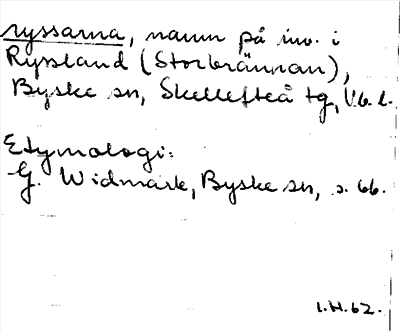 ryssarna, namn på inv. i
Ryssland (Storbrännan),
Byske sn, Skellefteå tg, Vb. l.
Etymologi:
G. Widmark, Byske sn, s. 66.
1.H.62.